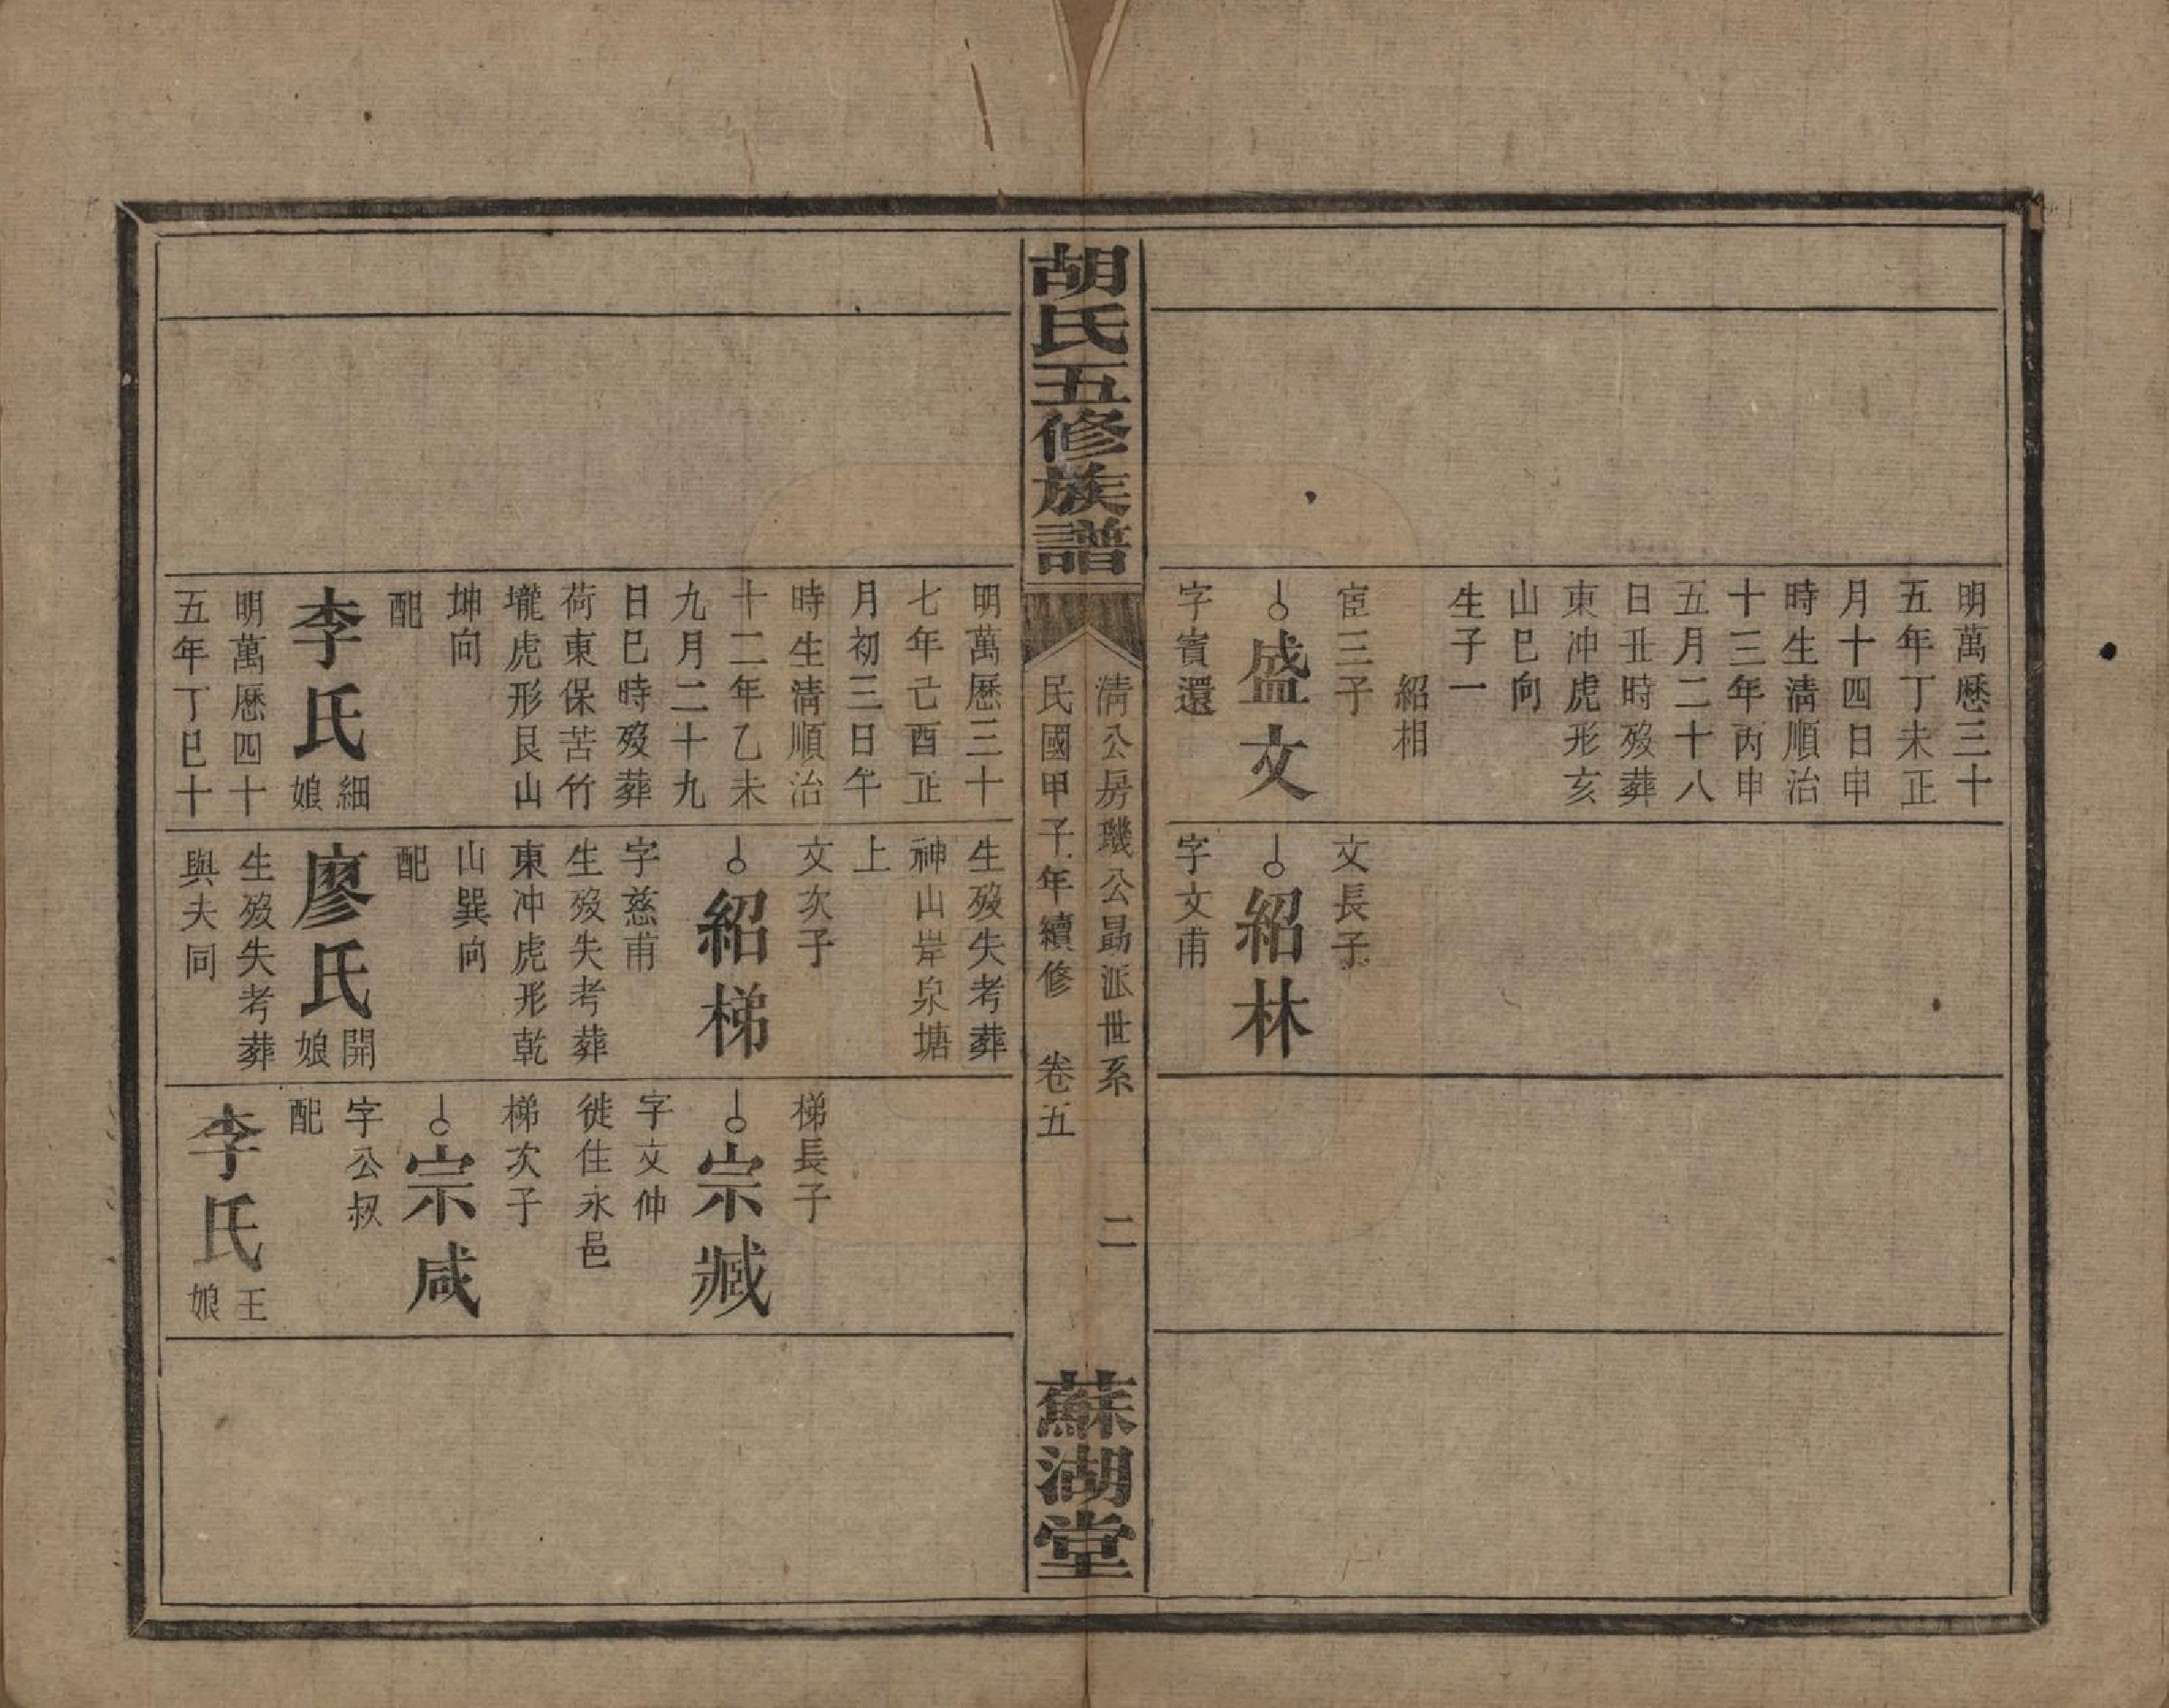 明萬厯三十
五年丁未正
月十四日申
時生淸順治
十三年丙申
五月二十八
日丑時歿葬
東冲虎形亥
山巳向
生子一
紹相
宦三子
盛文
字賓還
文長子
紹林
字文甫
胡氏五修族譜
淸公房璣公勗派世系
二
民國甲子年續修 卷五
蘇湖堂
明萬厯三十
七年己酉正
月初三日午
時生淸順治
十二年乙未
九月二十九
日巳時歿葬
荷東保苦竹
壠虎形艮山
坤向
配
李氏 細娘
明萬厯四十
五年丁巳十
生歿失考葬
神山岸泉塘
上
文次子
紹梯
字慈甫
生歿失考葬
東冲虎形乾
山巽向
配
廖氏 開娘
生歿失考葬
與夫同
梯長子
宗臧
字文仲
徙住永邑
梯次子
宗咸
字公叔
配
李氏 王娘